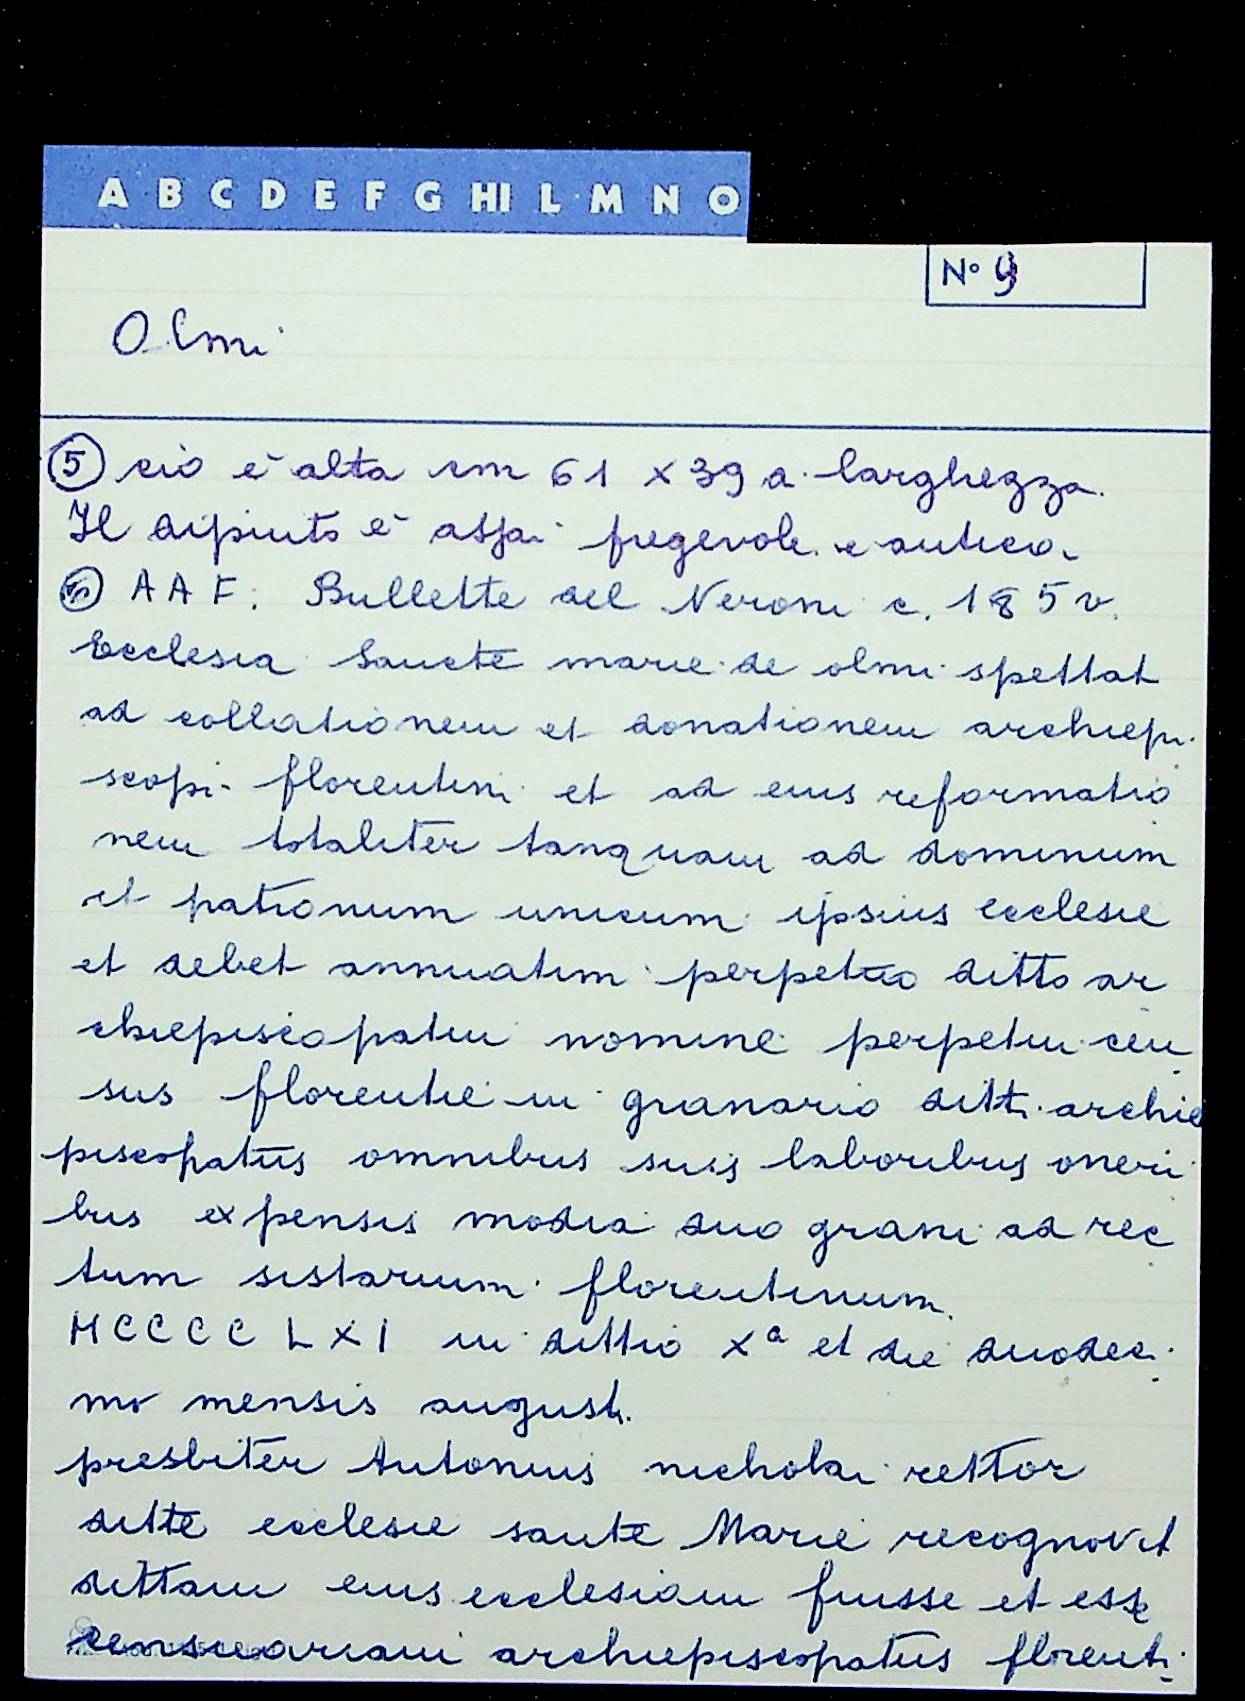 A B C D E F G HI L M N O
N° 9
Olmi
5 cio è alta cm 61 x 39 a larghezza.
Il dipinto è assai pregevole e antico.
6 A A F. Bullette del Neroni c. 185 v.
Ecclesia Sancte marie de olmi spettat
ad collationem et donationem archiepi
scopi florentini et ad eius reformatio
nem totaliter tanquam ad dominum
et patronum unicum ipsius ecclesie
et debet annuatim perpetuo ditto ar
chiepiscopatui nomine perpetui cen
sus florentie in granario ditti archie
piscopatus omnibus suis laboribus oneri
bus expensis modia duo grani ad rec
tum sistarium florentinum.
MCCCC LXI in dittio Xª et die duodeci
mo mensis augusti.
presbiter Antonius nicholai rettor
ditte ecclesie sante Marie recognovit
dittam eius ecclesiam fuisse et esse
censuariam archiepiscopatus florenti